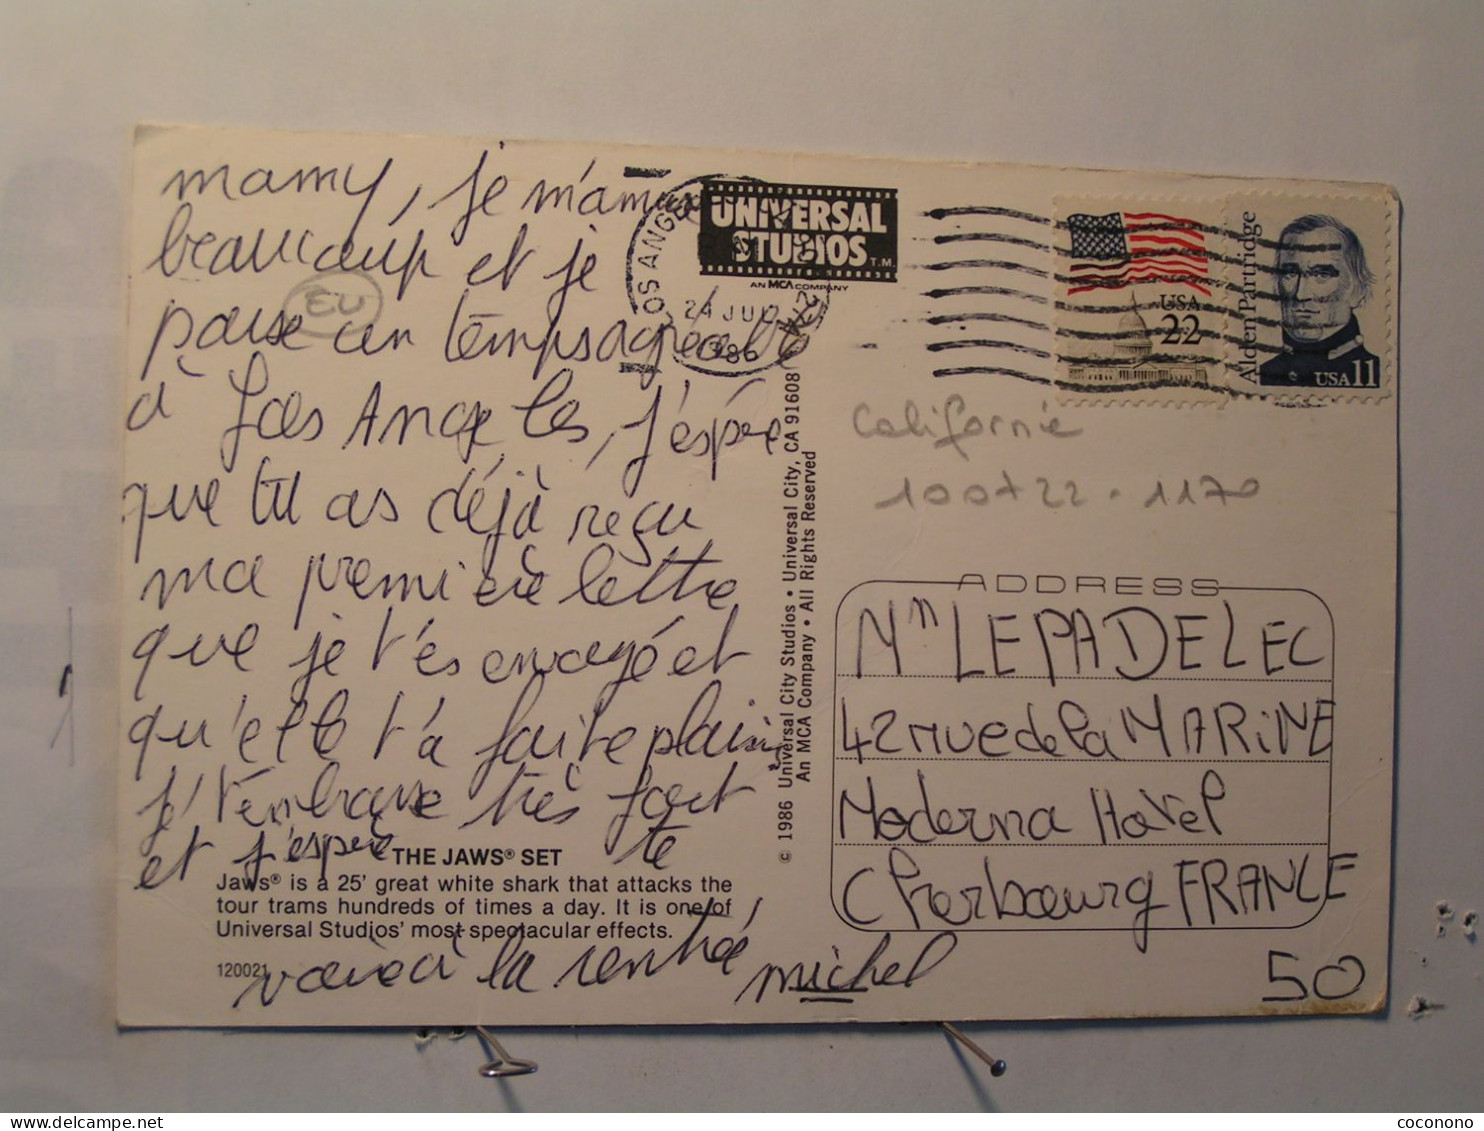 mamy, je m'amuse
beaucoup et je
passe un temps agréable
à Los Angeles, j'éspère
que tu as déjà reçu
ma premiére lettre
que je t'és envoyé et
qu'elle t'a faite plaisir
j't'embrasse très fort
et j'espère te
voire à la rentré michel
EU
THE JAWS® SET
Jaws® is a 25' great white shark that attacks the
tour trams hundreds of times a day. It is one of
Universal Studios' most spectacular effects.
120021
© 1986 Universal City Studios • Universal City, CA 91608
An MCA Company • All Rights Reserved
LOS ANGELES
24 JUL
1986
UNIVERSAL
STUDIOS T.M.
AN MCA COMPANY
USA
22
Alden Partridge
USA 11
Californie
100+22.1170
ADDRESS
Mm LEPADELEC
42 rue de la MARiNE
Moderna Hotel
Cherbourg FRANCE
50
coconono